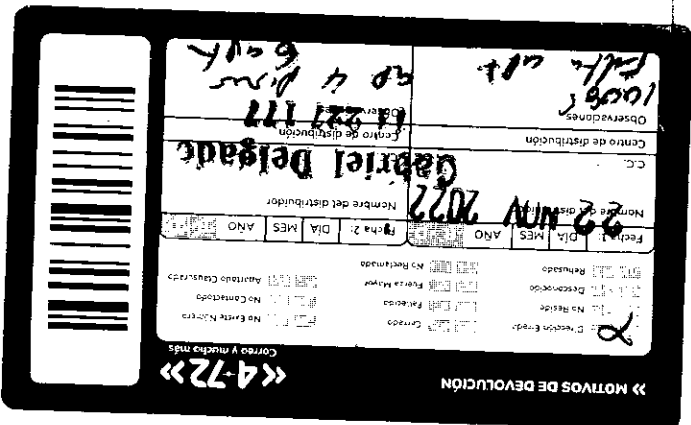 » MOTIVOS DE DEVOLUCIÓN
«4-72»
Correo y mucho más
Dirección Errada
No Reside
Desconocido
Rehusado
Cerrado
Fallecido
Fuerza Mayor
No Reclamado
No Existe Número
No Contactado
Apartado Clausurado
Fecha 1: DÍA MES AÑO
Fecha 2: DÍA MES AÑO
22 NOV 2022
Nombre del distribuidor
Nombre del distribuidor
Gabriel Delgado
C.C.
Centro de distribución
Centro de distribución
Observaciones
Falta apt
4 pisos